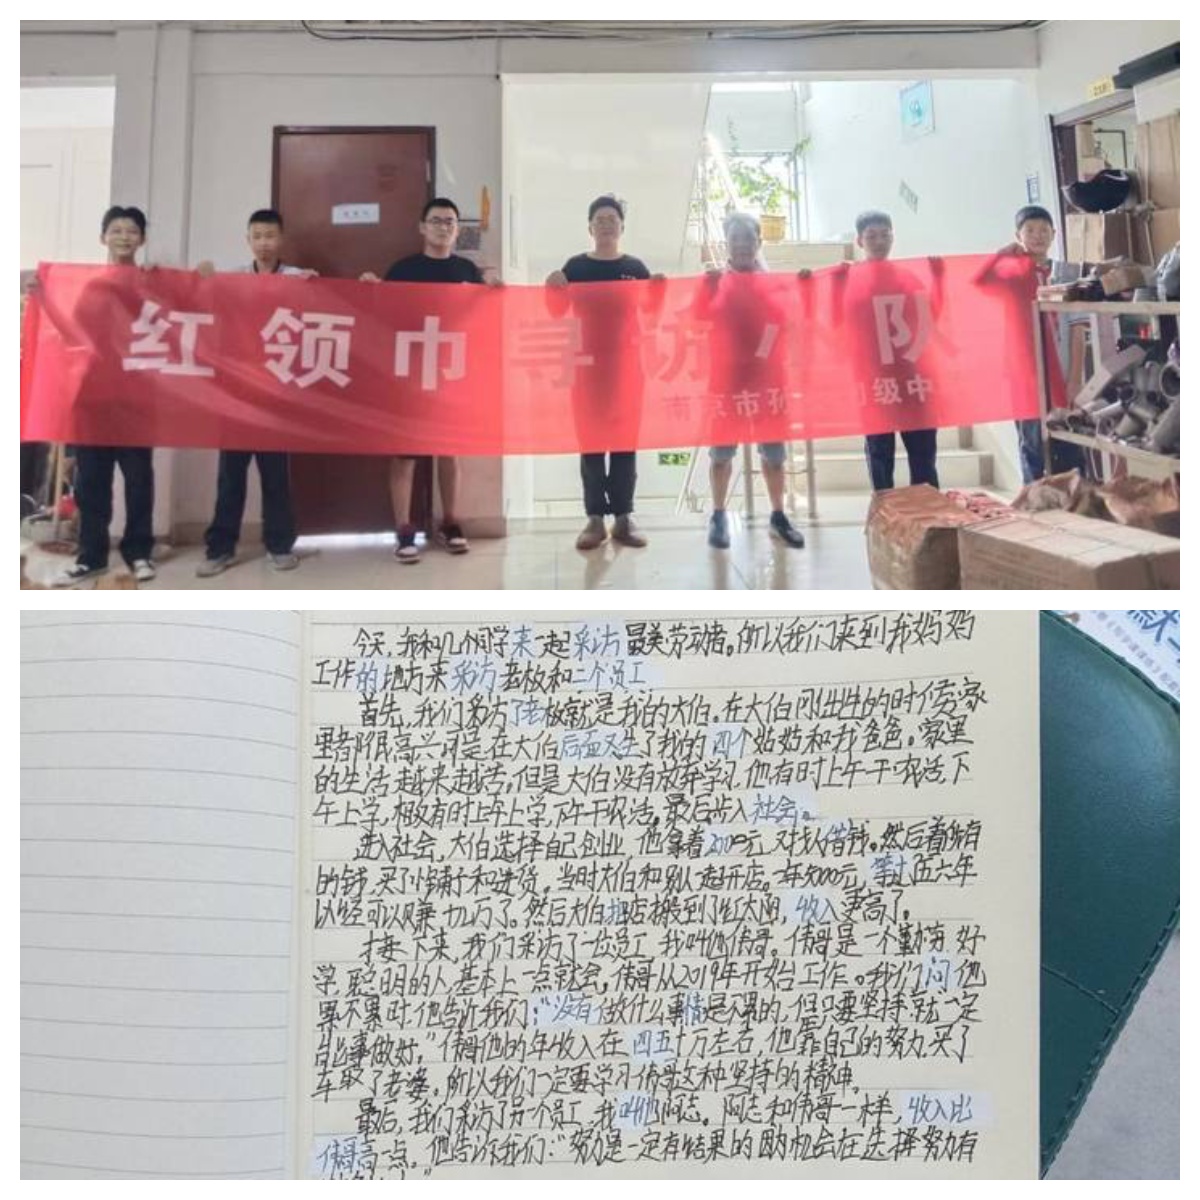 红领巾寻访小队
南京市孙 初级中
218
今天,我和几个同学来一起采访最美劳动者。所以我们来到我妈妈
工作的地方来采访老板和二个员工
首先,我们采访了老板就是我的大伯。在大伯刚出生的时候,家
里都很高兴可是在大伯后面又生了我的四个姑姑和我爸爸。家里
的生活越来越苦,但是大伯没有放弃学习,他有时上午干农活,下
午上学,相反有时上午上学,下午干农活。最后步入社会。
进入社会,大伯选择自己创业,他拿着 元,又找人借钱。然后看所有
的钱,买了小铺子和进货。当时大伯和别人一起开店。一年 元,等过伍六年
以经可以赚十几万了。然后大伯把店搬到了红太阳,收入更高了。
接下来,我们采访了一位员工,我叫他伟哥。伟哥是一个勤劳 好
学,聪明的人,基本上一点就会,伟哥从2019年开始工作。我们问他
累不累时,他告诉我们:“没有做什么事情是不累的,但只要坚持,就一定
能事做好。”伟哥他的年收入在四五十万左右,他靠自己的努力,买了
车,取了老婆。所以我们一定要学习伟哥这种坚持的精神。
最后,我们采访了另一个员工,我叫他阿志。阿志和伟哥一样,收入比
伟哥高一点。他告诉我们:“努力是一定有结果的,因为机会在选择努力有